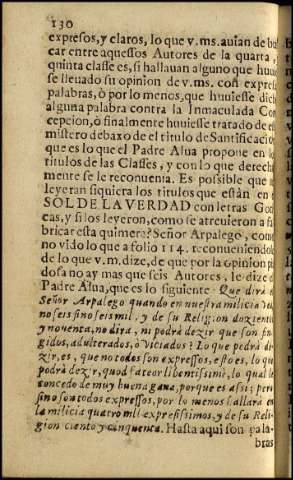 130
expresos, y claros, lo que v.ms. auian de bus
car entre aquessos Autores de la quarta,
quinta classe es, si hallauan alguno que huuie
se lleuado su opinion de v.ms. con expresas
palabras, ò por lo menos, que huuiesse dich
alguna palabra contra la Inmaculada Con
cepcion, ò finalmente huuiesse tratado de es
misterio debaxo de el titulo de Santificacion
que es lo que el Padre Alua propone en lo
titulos de las Classes, y con lo que derecha
mente se le reconuenia. Es possible que n
leyeran siquiera los titulos que están en e
SOL DE LA VERDAD con letras Got
cas, y si los leyeron, como se atreuieron a fa
bricar esta quimera? Señor Arpalego, como
no vido lo que a folio 114. reconueniendole
de lo que v.m. dize, de que por la opinion pia
dosa no ay mas que seis Autores, le dize el
Padre Alua, que es lo siguiente. Que dirá el
Señor Arpalego quando en nuestra milicia vea
no seis sino seis mil, y de su Religion dozientos
y nouenta, no dira, ni podrà dezir que son fin
gidos, adulterados, ò viciados? Lo que podrà de
zir, es, que no todos son expressos, esso es, lo que
podrà dezir, quod fateor libentissimè, lo qual le
concedo de muy buena gana, porque es assi; pero
sino son todos expressos, por lo menos hallarà en
la milicia quatro mil expresissimos, y de su Reli
gion ciento y cinquenta. Hasta aqui son pala-
bras